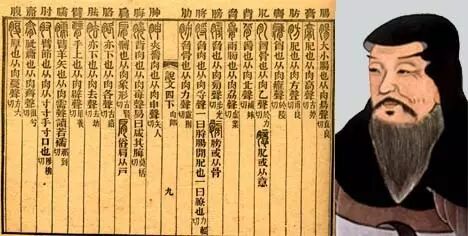 大小腸也从肉昜聲直良切
肥也从肉高聲古勞切
肥也从肉方聲甫良切
胷也从肉䧹聲於陵切
胷骨也从肉乙聲於力切 肊或从意
脊也从肉北聲補妹切
兩膀也从肉劦聲虛業切
脅也从肉旁聲步光切 膀或从骨
脅肉也从肉寽聲一曰脟腸閒肥也一曰膫也力輟切
脅骨也从肉力聲盧則切
說文四下 肉部 九
夾脊肉也从肉申聲矢人切
背肉也从肉每聲易曰咸其脢莫桮切
髆也从肉象形古賢切 俗肩从戶
亦下也从肉各聲古洛切
亦下也从肉去聲去劫切
手上也从肉辟聲卑義切
臂羊矢也从肉需聲讀若襦那到切
臂節也从肉从寸寸手寸口也陟柳切
肶齎也从肉齊聲徂兮切
厚也从肉复聲方六切